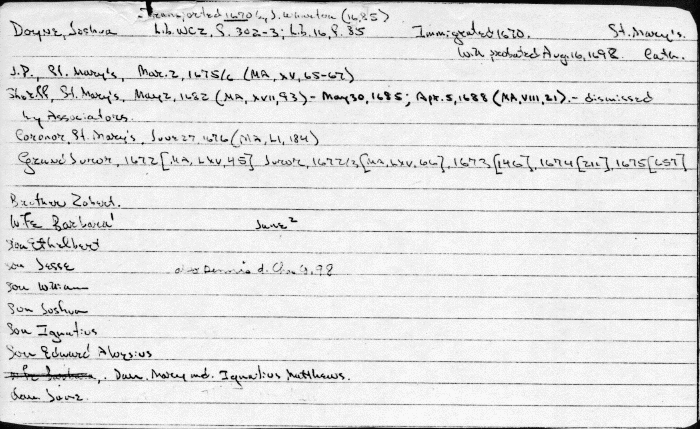 Transported 1670 by J. Wharton (16.25)
Doyne, Joshua Lib. WC2, P. 302-3; Lib. 16, P. 85 Immigrated 1670. St. Mary's.
Will probated Aug. 16, 1698. Cath.
J.P., St. Mary's, Mar. 2, 1675/6 (MA, XV, 65-67)
Sheriff, St. Mary's, May 2, 1682 (MA, XVII, 93) - May 30, 1685; Apr. 5, 1688 (MA, VIII, 21). - dismissed
by Associators.
Coronor, St. Mary's, June 27, 1676 (MA, LI, 184)
Grand Juror, 1672 [MA, LXV, 45] Juror, 1672/3 [MA, LXV, 66], 1673 [146], 1674 [211], 1675 [657]
Brother Robert.
Wife Barbara' Jane²
Son Ethelbert
Son Jesse
Son William
Son Joshua
Son Ignatius
Son Edward Aloysius
Dau. Mary md. Ignatius Matthews.
dau Jane.